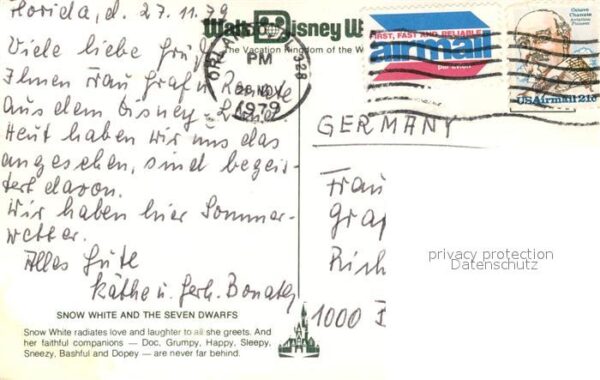 Florida, d. 27.11.79
Viele liebe Grüße
Ihnen Frau Graf u. Renate
aus dem Disney-Land
Heut haben wir uns das
angesehen, sind begeis-
tert davon.
Wir haben hier Sommer-
wetter.
Alles Gute
Käthe u. Gerh.
SNOW WHITE AND THE SEVEN DWARFS
Snow White radiates love and laughter to all she greets. And
her faithful companions — Doc, Grumpy, Happy, Sleepy,
Sneezy, Bashful and Dopey — are never far behind.
Walt Disney W
The Vacation Kingdom of the W
PM
NOV
1979
328
FIRST, FAST AND RELIABLE
airmail
Octave
Chanute
Aviation
Pioneer
USAirmail 21c
GERMANY
Frau
Graf
Rich
1000
privacy protection
Datenschutz